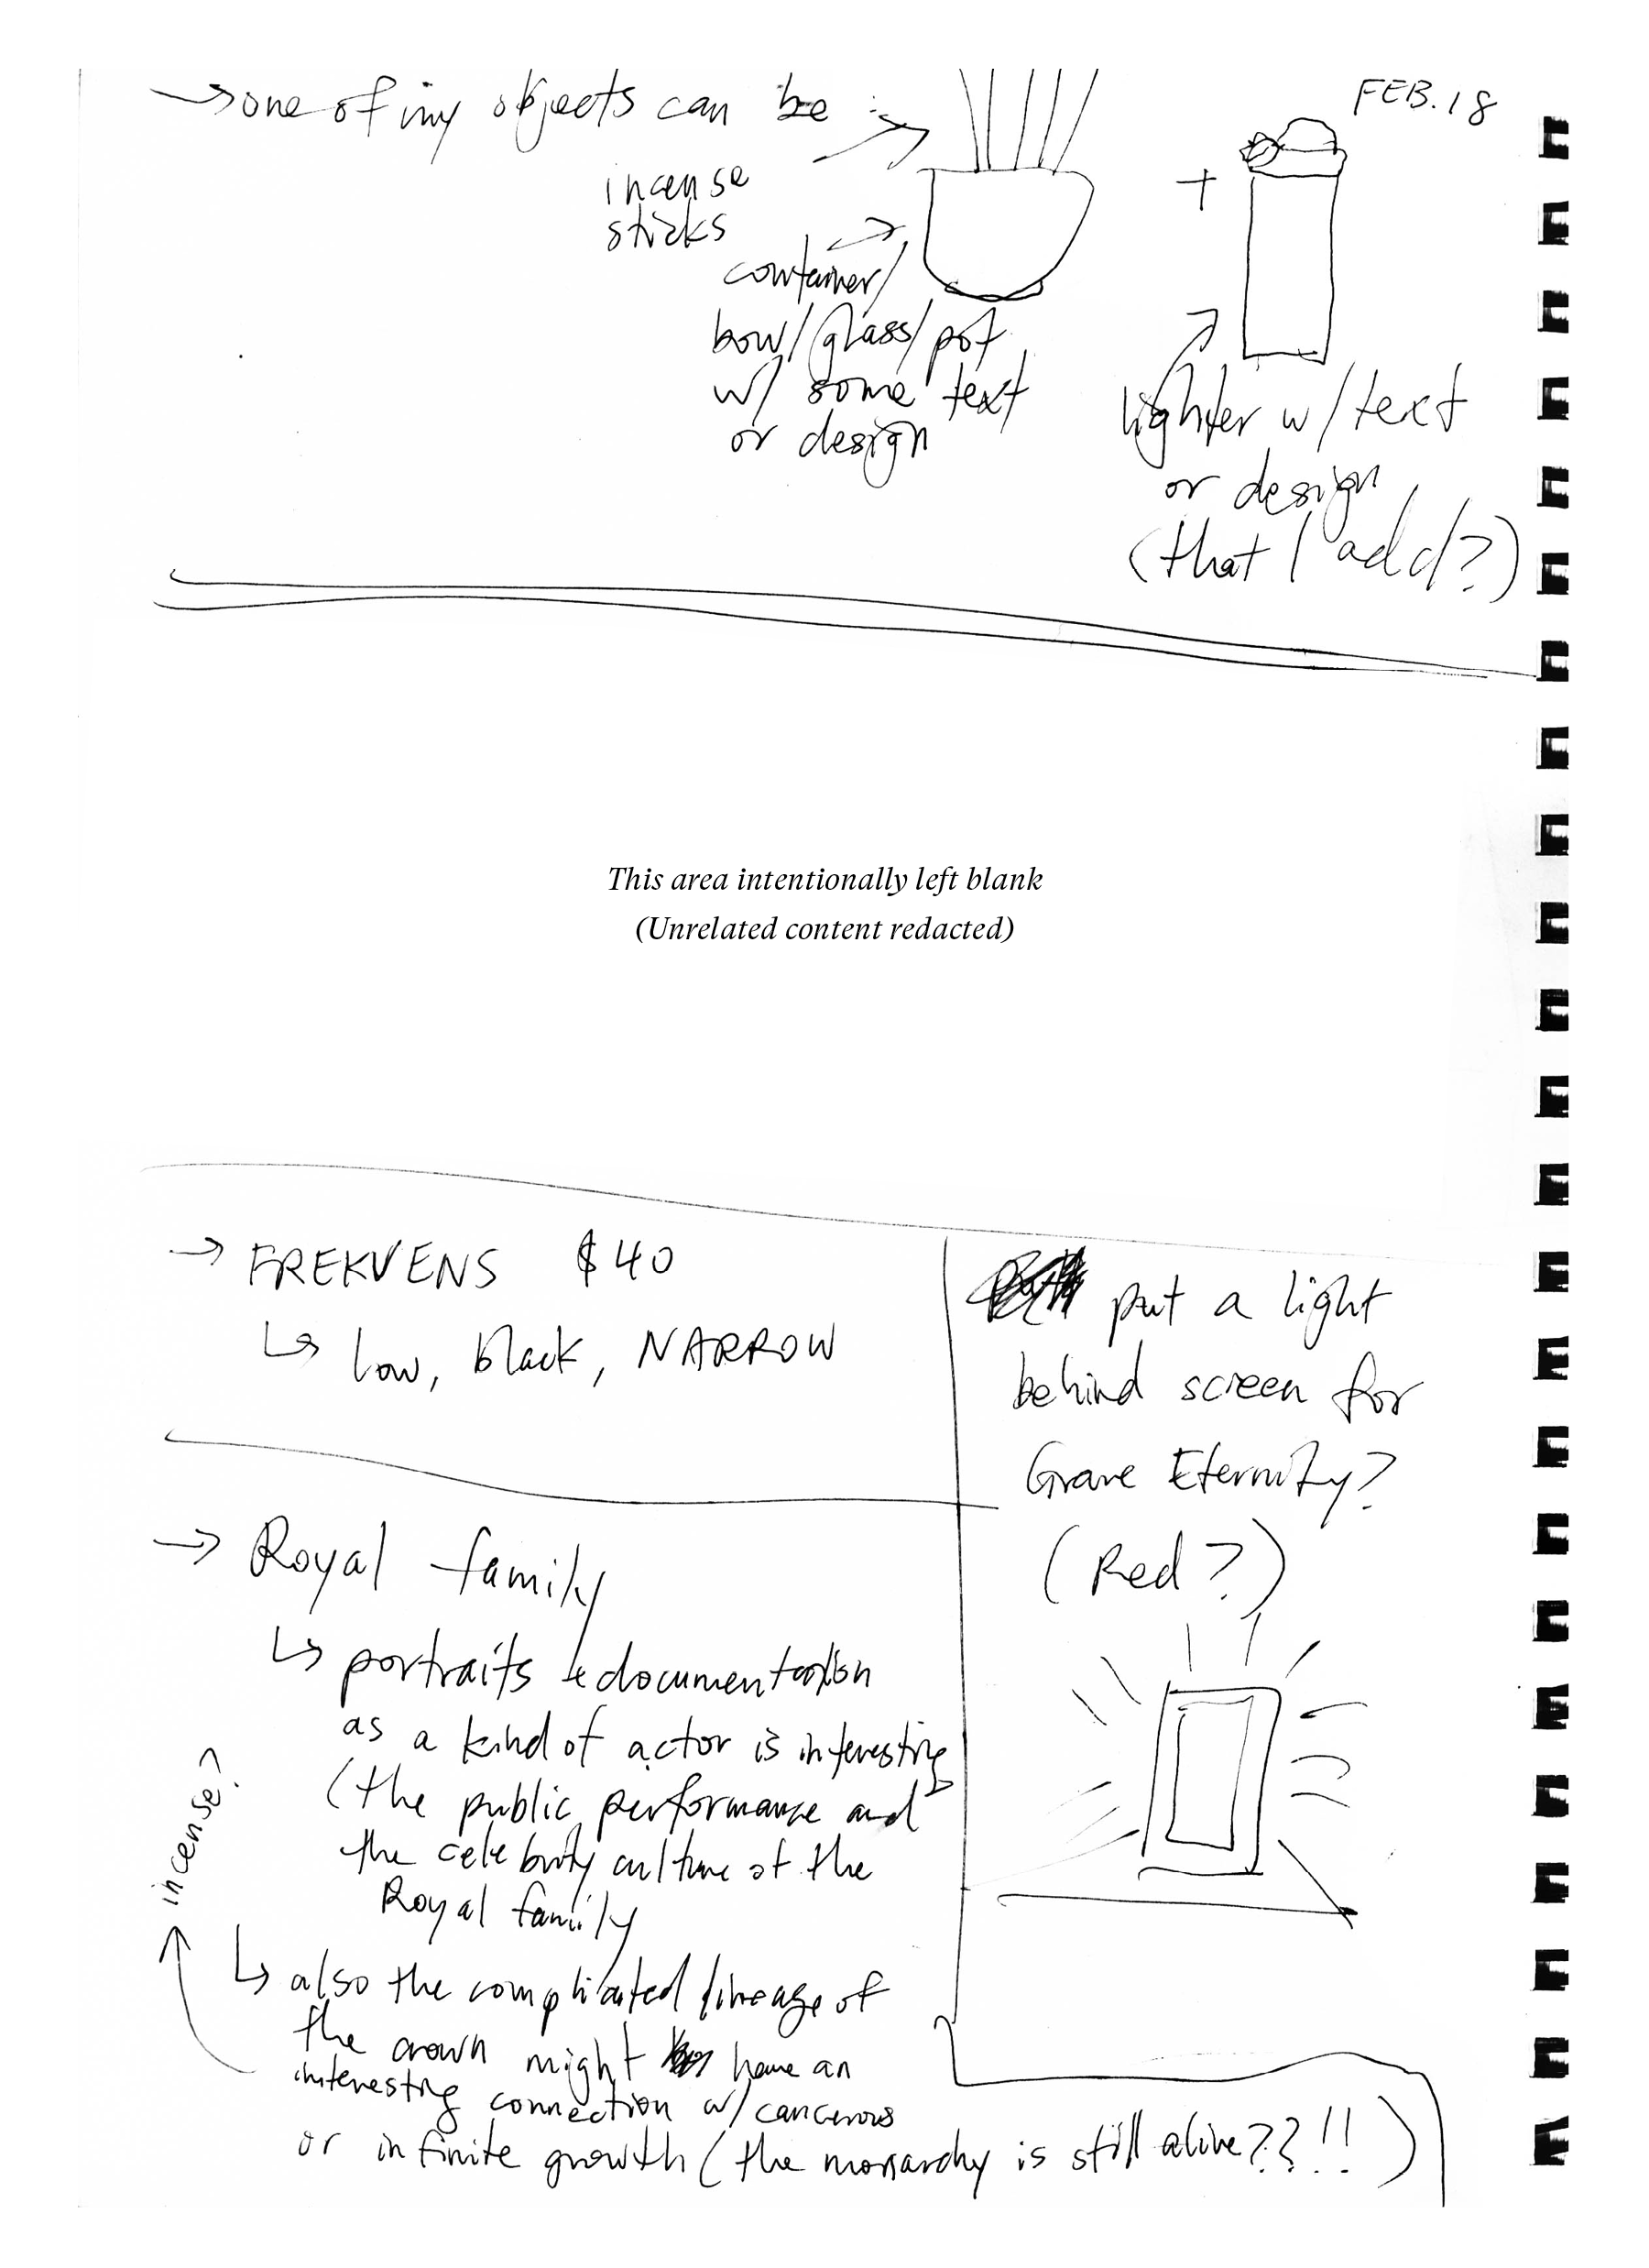 FEB. 18
→ one of my objects can be :
incense
sticks
container/
bowl/glass/pot
w/ some text
or design
+
lighter w/ text
or design
(that I add?)
This area intentionally left blank
(Unrelated content redacted)
→ FREKVENS $40
↳ low, black, NARROW
put a light
behind screen for
Grave Eternity?
(Red?)
→ Royal family
↳ portraits + documentation
as a kind of actor is interesting
(the public performance and
the celebrity culture of the
Royal family
↳ also the complicated lineage of
the crown might have an
interesting connection w/ cancerous
or infinite growth (the monarchy is still alive??!!)
incense?